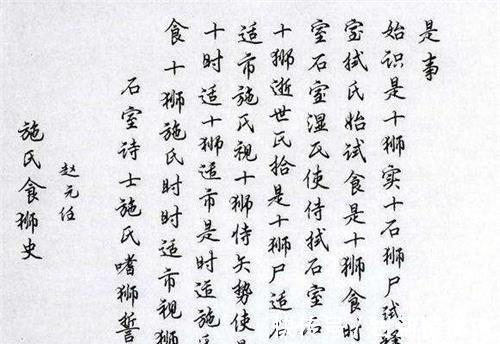 施氏食狮史
赵元任
石室诗士施氏嗜狮誓
食十狮施氏时时适市视狮
十时适十狮适市是时适施
适市施氏视十狮恃矢势使
十狮逝世氏拾是十狮尸适
室石室湿氏使侍拭石室
室拭氏始试食是十狮食时
始识是十狮实十石狮尸试
是事